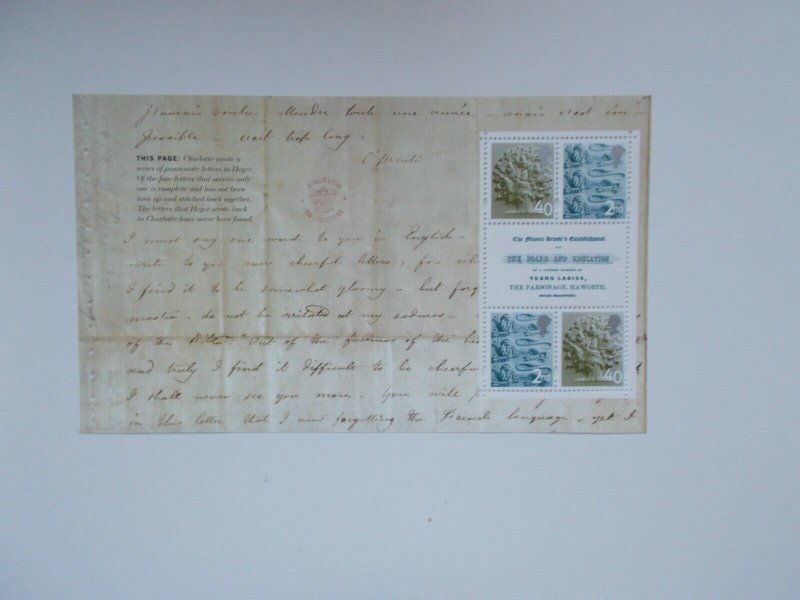 français voulu attendre toute une année - mais c'est im-
possible - c'est trop long.
C Brontë
THIS PAGE: Charlotte wrote a
series of passionate letters to Heger.
Of the four letters that survive only
one is complete and has not been
torn up and stitched back together.
The letters that Heger wrote back
to Charlotte have never been found.
BRITISH
MUSEUM
I must say one word to you in English -
write to you more cheerful letters, for
I find it to be somewhat gloomy - but
master - do not be irritated at my sadness -
of the Bible: "Out of the fulness of the
and truly I find it difficult to be cheerful
I shall never see you more. You will
in this letter that I am forgetting the French language - yet I
40
2nd
The Misses Brontë's Establishment
THE BOARD AND EDUCATION
OF A LIMITED NUMBER OF
YOUNG LADIES,
THE PARSONAGE, HAWORTH,
NEAR BRADFORD.
2nd
40